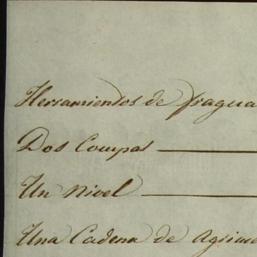 Herramientos de fragua
Dos Compas
Un Nivel
Una Cadena de Agrime